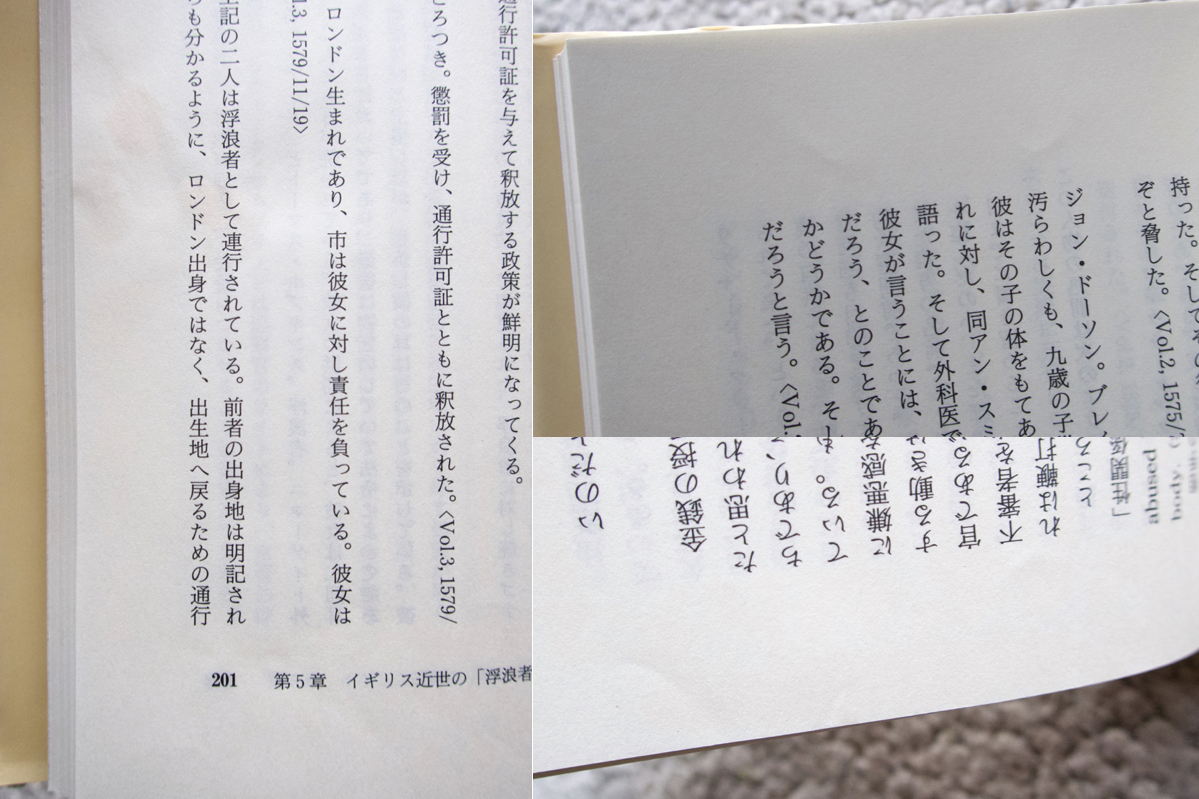 通行許可証を与えて釈放する政策が鮮明になってくる。
ごろつき。懲罰を受け、通行許可証とともに釈放された。〈Vol.3, 1579/
ロンドン生まれであり、市は彼女に対し責任を負っている。彼女は
l.3, 1579/11/19〉
上記の二人は浮浪者として連行されている。前者の出身地は明記され
らも分かるように、ロンドン出身ではなく、出生地へ戻るための通行
201 第5章 イギリス近世の「浮浪者
持った。そして
ぞと脅した。〈Vol.2, 1575/
ジョン・ドーソン。ブレ
汚らわしくも、九歳の子
彼はその子の体をもてあ
れに対し、同アン・スミ
語った。そして外科医で
彼女が言うことには、
だろう、とのことであ
かどうかである。そ
だろうと言う。〈Vol.
body.
abused
「性関係
ところ
れは鞭打
不審者を
官である
する動き
に嫌悪感を
ている。
ちであり、
たと思われ
金銭の授
いのだと